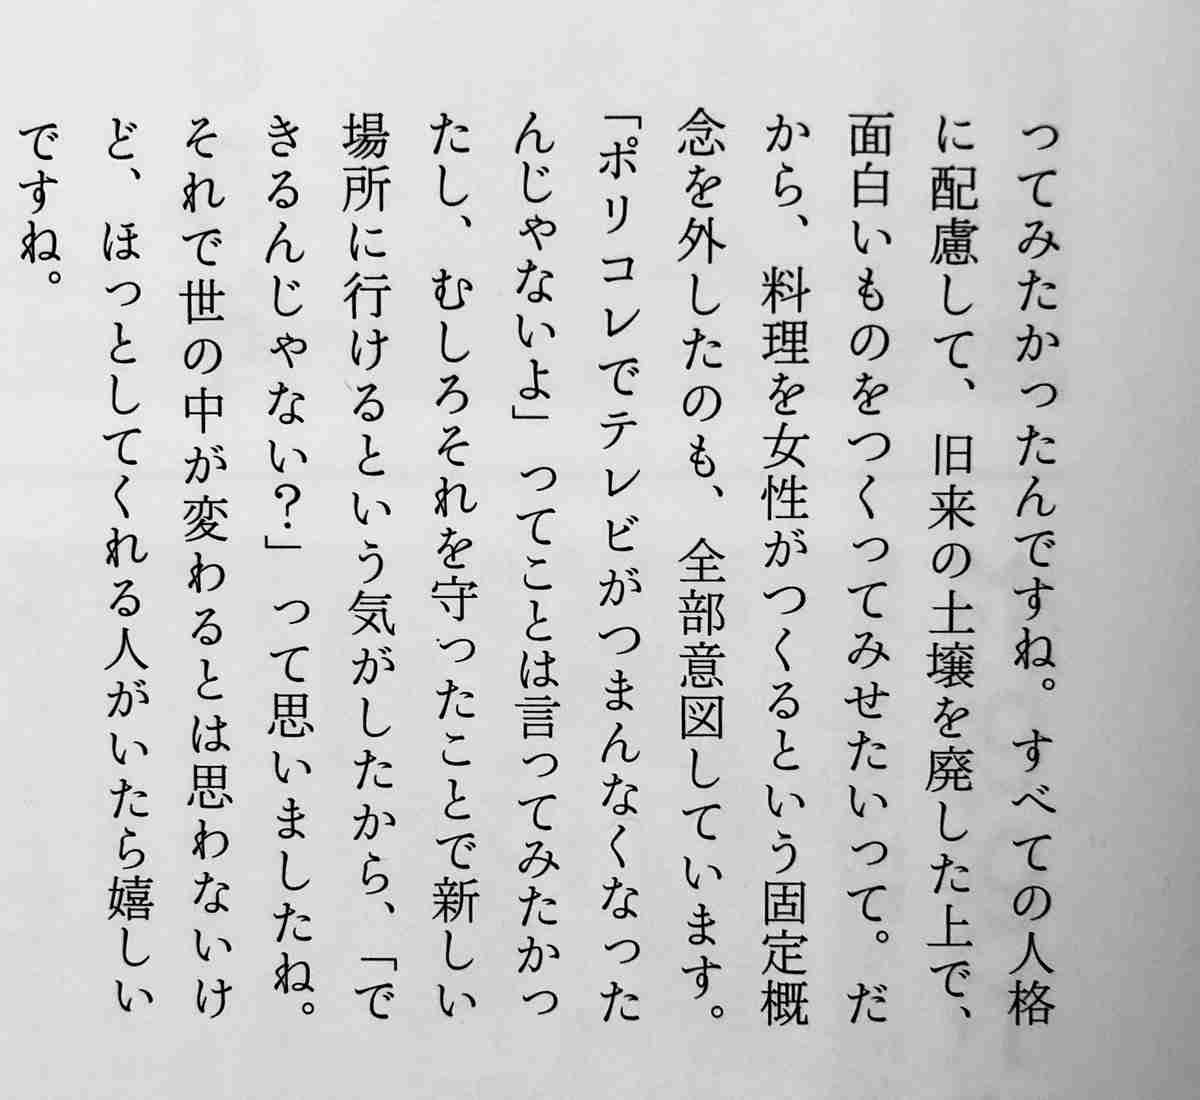 ってみたかったんですね。すべての人格
に配慮して、旧来の土壌を廃した上で、
面白いものをつくってみせたいって。だ
から、料理を女性がつくるという固定概
念を外したのも、全部意図しています。
「ポリコレでテレビがつまんなくなった
んじゃないよ」ってことは言ってみたかっ
たし、むしろそれを守ったことで新しい
場所に行けるという気がしたから、「で
きるんじゃない？」って思いましたね。
それで世の中が変わるとは思わないけ
ど、ほっとしてくれる人がいたら嬉しい
ですね。